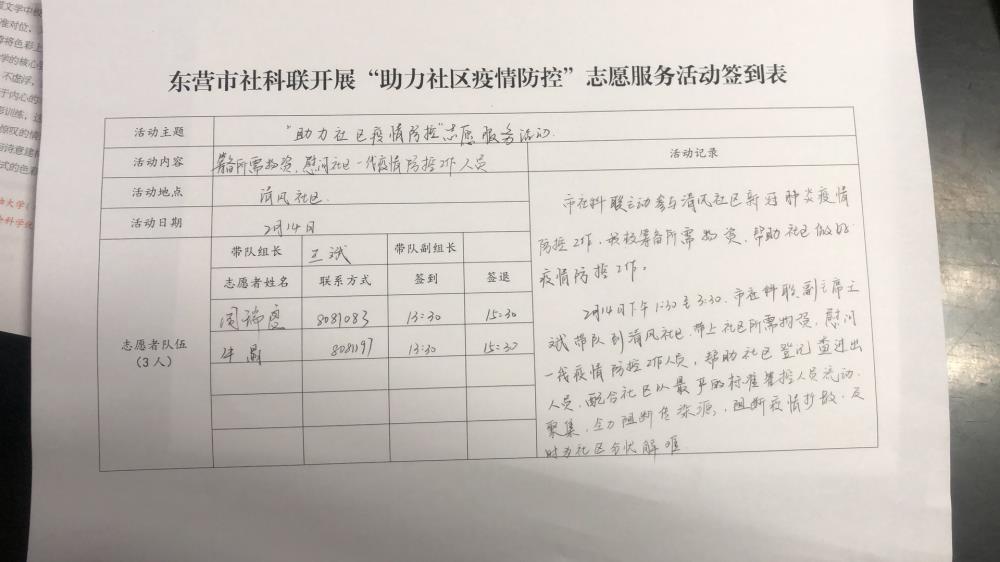 东营市社科联开展“助力社区疫情防控”志愿服务活动签到表
活动主题 “助力社区疫情防控”志愿服务活动.
活动内容 筹备所需物资、慰问社区一线疫情防控工作人员
活动记录
活动地点 清风社区
活动日期 2月14日
带队组长 王斌 带队副组长
志愿者姓名 联系方式 签到 签退
志愿者队伍
(3人)
8081083 13:30 15:30
牛晶 8081197 13:30 15:30
市社科联主动参与清风社区新冠肺炎疫情
防控工作,积极筹备所需物资,帮助社区做好
疫情防控工作。
2月14日下午1:30至3:30,市社科联副主席王
斌带队到清风社区带上社区所需物资,慰问
一线疫情防控工作人员,帮助社区登记查进出
人员,配合社区以最严的标准管控人员流动、
聚集,全力阻断传染源,阻断疫情扩散,及
时为社区分忧解难.